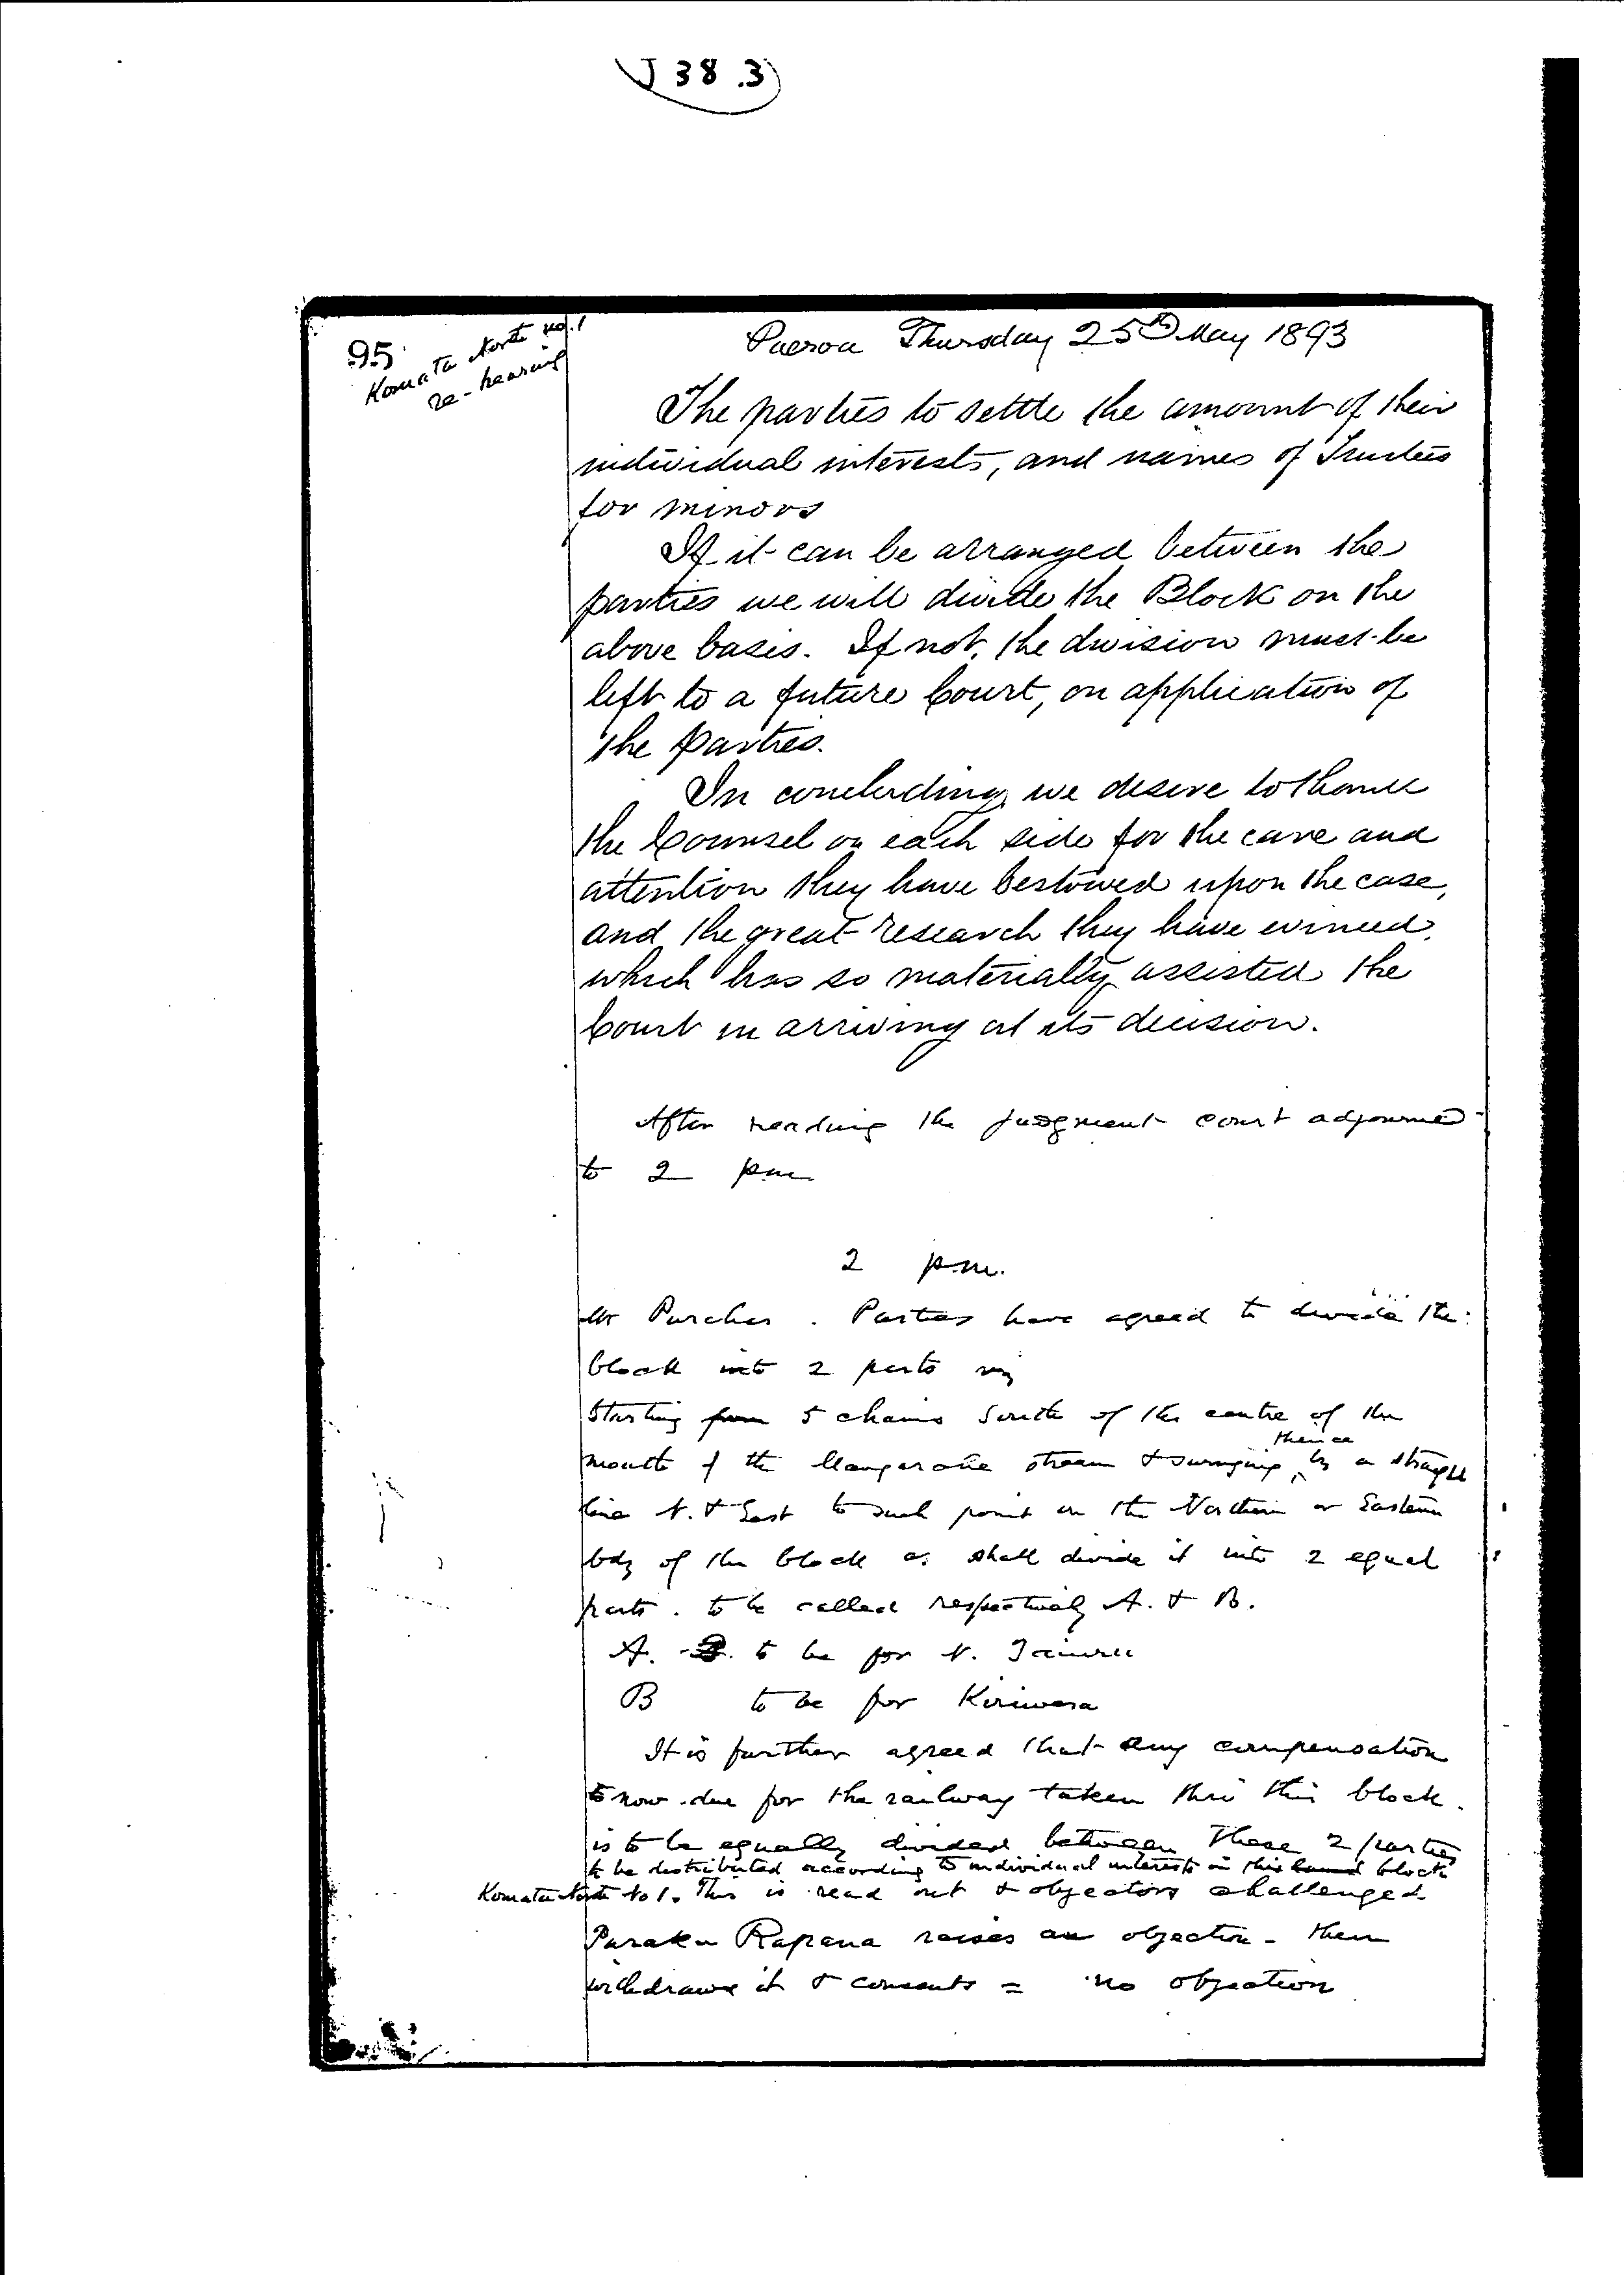 J 38.3
95
Komata North No. 1
re-hearing
Paeroa Thursday 25th May 1893
The parties to settle the amount of their
individual interests, and names of Trustees
for minors
If it can be arranged between the
parties we will divide the Block on the
above basis. If not, the division must be
left to a future Court, on application of
the parties.
In concluding, we desire to thank
the Counsel on each side for the care and
attention they have bestowed upon the case,
and the great research they have evinced,
which has so materially assisted the
Court in arriving at its decision.
After reading the judgment court adjourned
to 2 pm
2 p.m.
Mr Purchas. Parties have agreed to divide the
block into 2 parts viz
Starting from 5 chains South of the centre of the
mouth of the stream & running thence by a straight
line N. & East to such point on the Northern or Eastern
bdy of the block as shall divide it into 2 equal
parts. to be called respectively A. & B.
A. to be for N. Taiuru
B to be for Kiriwera
It is further agreed that any compensation
now due for the railway taken thro this block
is to be equally divided between these 2 parties
to be distributed according to individual interests in this block
Komata North No 1. This is read out & objectors challenged
Paraku Rapana raises an objection - then
withdraws it & consents = no objection